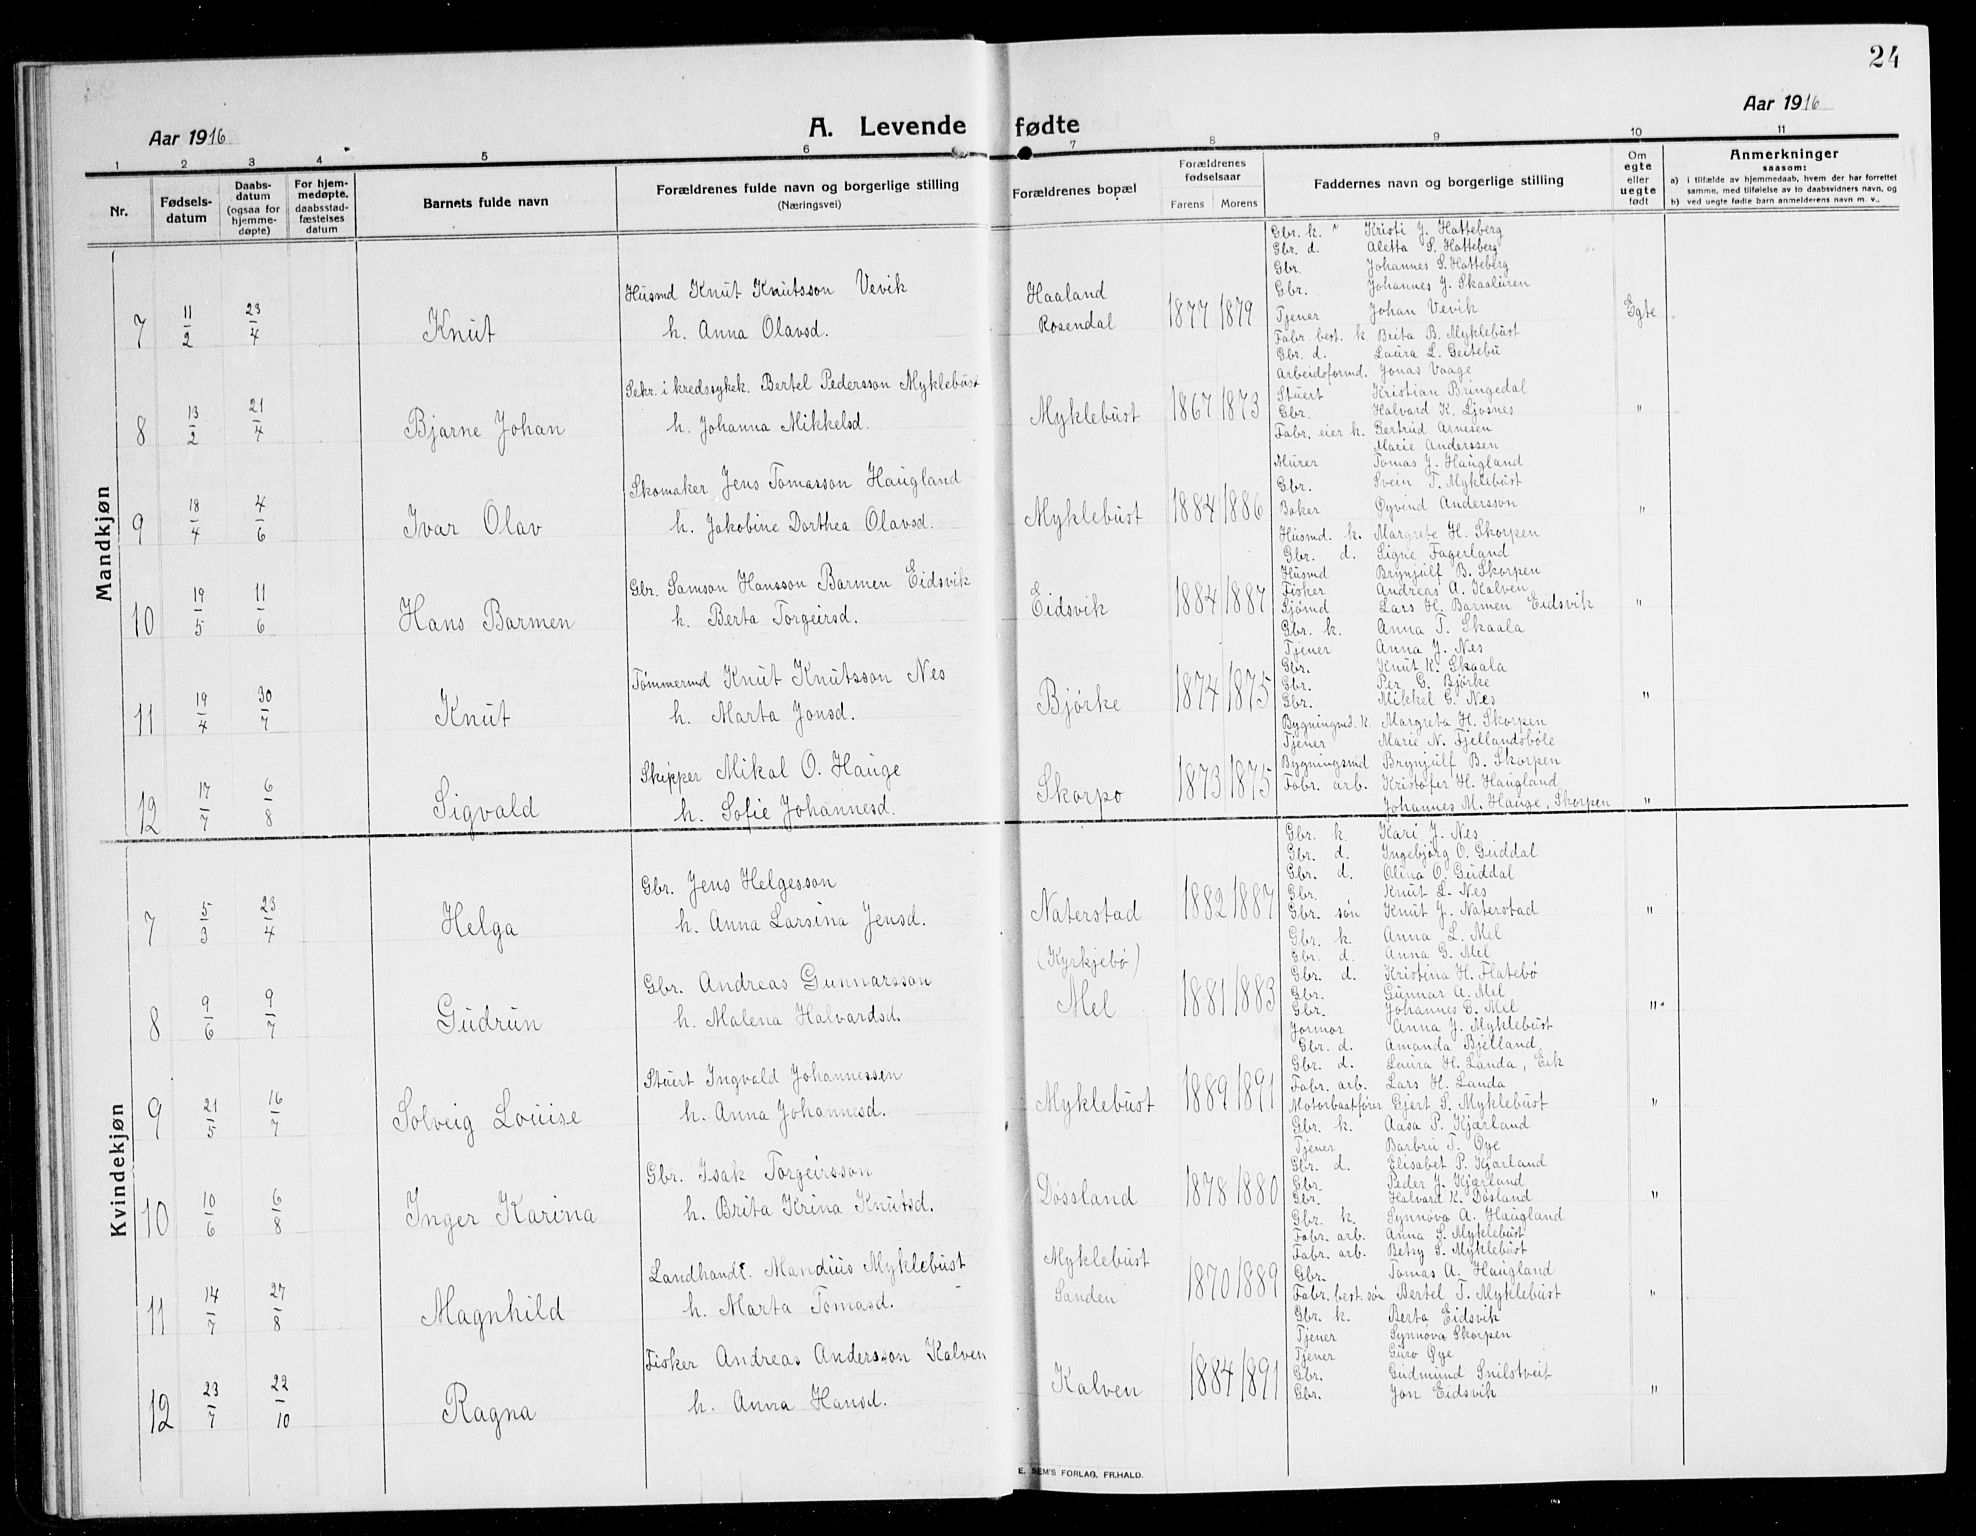 24
Aar 1916
A. Levende fødte
Aar 1916
1 2 3 4 5 6 7 8 9 10 11
Nr.
Fødsels-
datum
Daabs-
datum
(ogsaa for
hjemme-
døpte)
For hjem-
medøpte,
daabsstad-
fæstelses
datum
Barnets fulde navn
Forældrenes fulde navn og borgerlige stilling
(Næringsvei)
Forældrenes bopæl
Forældrenes
fødselsaar
Farens Morens
Faddernes navn og borgerlige stilling
Om
egte
eller
uegte
født
Anmerkninger
saasom:
a) i tilfælde av hjemmedaab, hvem der har forrettet
samme, med tilføielse av to daabsvidners navn, og
b) ved uegte fødte barn anmelderens navn m. v.
Mandkjøn
7 11/2 23/4 Knut
Husmd Knut Knutsson Vevik
h. Anna Olavsd.
Haaland
Rosendal
1877 1879
Gbr. k. Kristi J. Hatteberg
Gbr. d. Aletta S. Hatteberg
Gbr. Johannes S. Hatteberg
Gbr. Johannes J. Skaaluren
Tjener Johan Vevik
Egte
8 13/2 21/4 Bjarne Johan
Sekr. i kredssykek. Bertel Pedersson Myklebust
h. Johanna Mikkelsd.
Myklebust
1867 1873
Fabr. best. k. Brita B. Myklebust
Gbr. d. Laura L. Geitebu
Arbeidsformd. Jonas Vaage
Stuert Kristian Bringedal
Gbr. Halvard K. Ljosnes
"
9 18/4 4/6 Ivar Olav
Skomaker Jens Tomasson Haugland
h. Jakobine Dorthea Olavsd.
Myklebust
1884 1886
Fabr. eier k. Bertrud Arnesen
Marie Anderssen
Murer Tomas J. Haugland
Gbr. Svein T. Myklebust
Baker Øyvind Andersson
"
10 19/5 11/6 Hans Barmen
Gbr. Samson Hansson Barmen Eidsvik
h. Berta Torgeirsd.
Eidsvik
1884 1887
Husmd. k. Margrete H. Skorpen
Gbr. d. Signe Fagerland
Husmd Brynjulf B. Skorpen
Fisker Andreas A. Kalven
Sjømd Lars H. Barmen Eidsvik
"
11 19/4 30/7 Knut
Tømmermd Knut Knutsson Nes
h. Marta Jonsd.
Bjørke
1874 1875
Gbr. k. Anna T. Skaala
Tjener Anna J. Nes
Gbr. Knut K. Skaala
Gbr. Per G. Bjørke
Gbr. Mikkel C. Nes
"
12 17/7 6/8 Sigvald
Skipper Mikal O. Hauge
h. Sofie Johannesd.
Skorpo
1873 1875
Bygningsmd. k. Margreta H. Skorpen
Tjener Marie N. Fjellandsbøle
Bygningsmd Brynjulf B. Skorpen
Fabr. arb. Kristofer H. Haugland
Johannes M. Hauge, Skorpen
"
Kvindekjøn
7 5/3 23/4 Helga
Gbr. Jens Helgesson
h. Anna Larsina Jensd.
Naterstad
(Kyrkjebø)
1882 1887
Gbr. k. Kari J. Nes
Gbr. d. Ingebjørg O. Guddal
Gbr. d. Olina O. Guddal
Gbr. Knut L. Nes
Gbr. søn Knut J. Naterstad
"
8 9/6 9/7 Gudrun
Gbr. Andreas Gunnarsson
h. Malena Halvardsd.
Mel
1881 1883
Gbr. k. Anna L. Mel
Gbr. d. Anna G. Mel
Gbr. d. Kristina H. Flatebø
Gbr. Gunnar A. Mel
Gbr. Johannes G. Mel
"
9 21/5 16/7 Solveig Louise
Stuert Ingvald Johannessen
h. Anna Johannesd.
Myklebust
1889 1891
Jormor Anna J. Myklebust
Gbr. d. Amanda Bjelland
Gbr. d. Laura H. Landa, Eik
Fabr. arb. Lars H. Landa
Motorbaatfører Gjert S. Myklebust
"
10 10/6 6/8 Inger Karina
Gbr. Isak Torgeirsson
h. Brita Krina Knutsd.
Døssland
1878 1880
Gbr. k. Aasa P. Kjærland
Tjener Barbru T. Øye
Gbr. d. Elisabet P. Kjærland
Gbr. Peder J. Kjærland
Gbr. Halvard K. Døsland
"
11 14/7 27/8 Magnhild
Landhandl. Mandius Myklebust
h. Marta Tomasd.
Myklebust
Sanden
1870 1889
Gbr. k. Synnøva A. Haugland
Fabr. arb. Anna S. Myklebust
Fabr. arb. Betsy S. Myklebust
Gbr. Tomas A. Haugland
Fabr. best. søn Bertel T. Myklebust
"
12 23/7 22/10 Ragna
Fisker Andreas Andersson Kalven
h. Anna Hansd.
Kalven
1884 1891
Gbr. k. Berta Eidsvik
Tjener Synnøva Skorpen
Tjener Guro Øye
Gbr. Gudmund Snilstveit
Gbr. Jon Eidsvik
"
E. SEM'S FORLAG, FR.HALD.